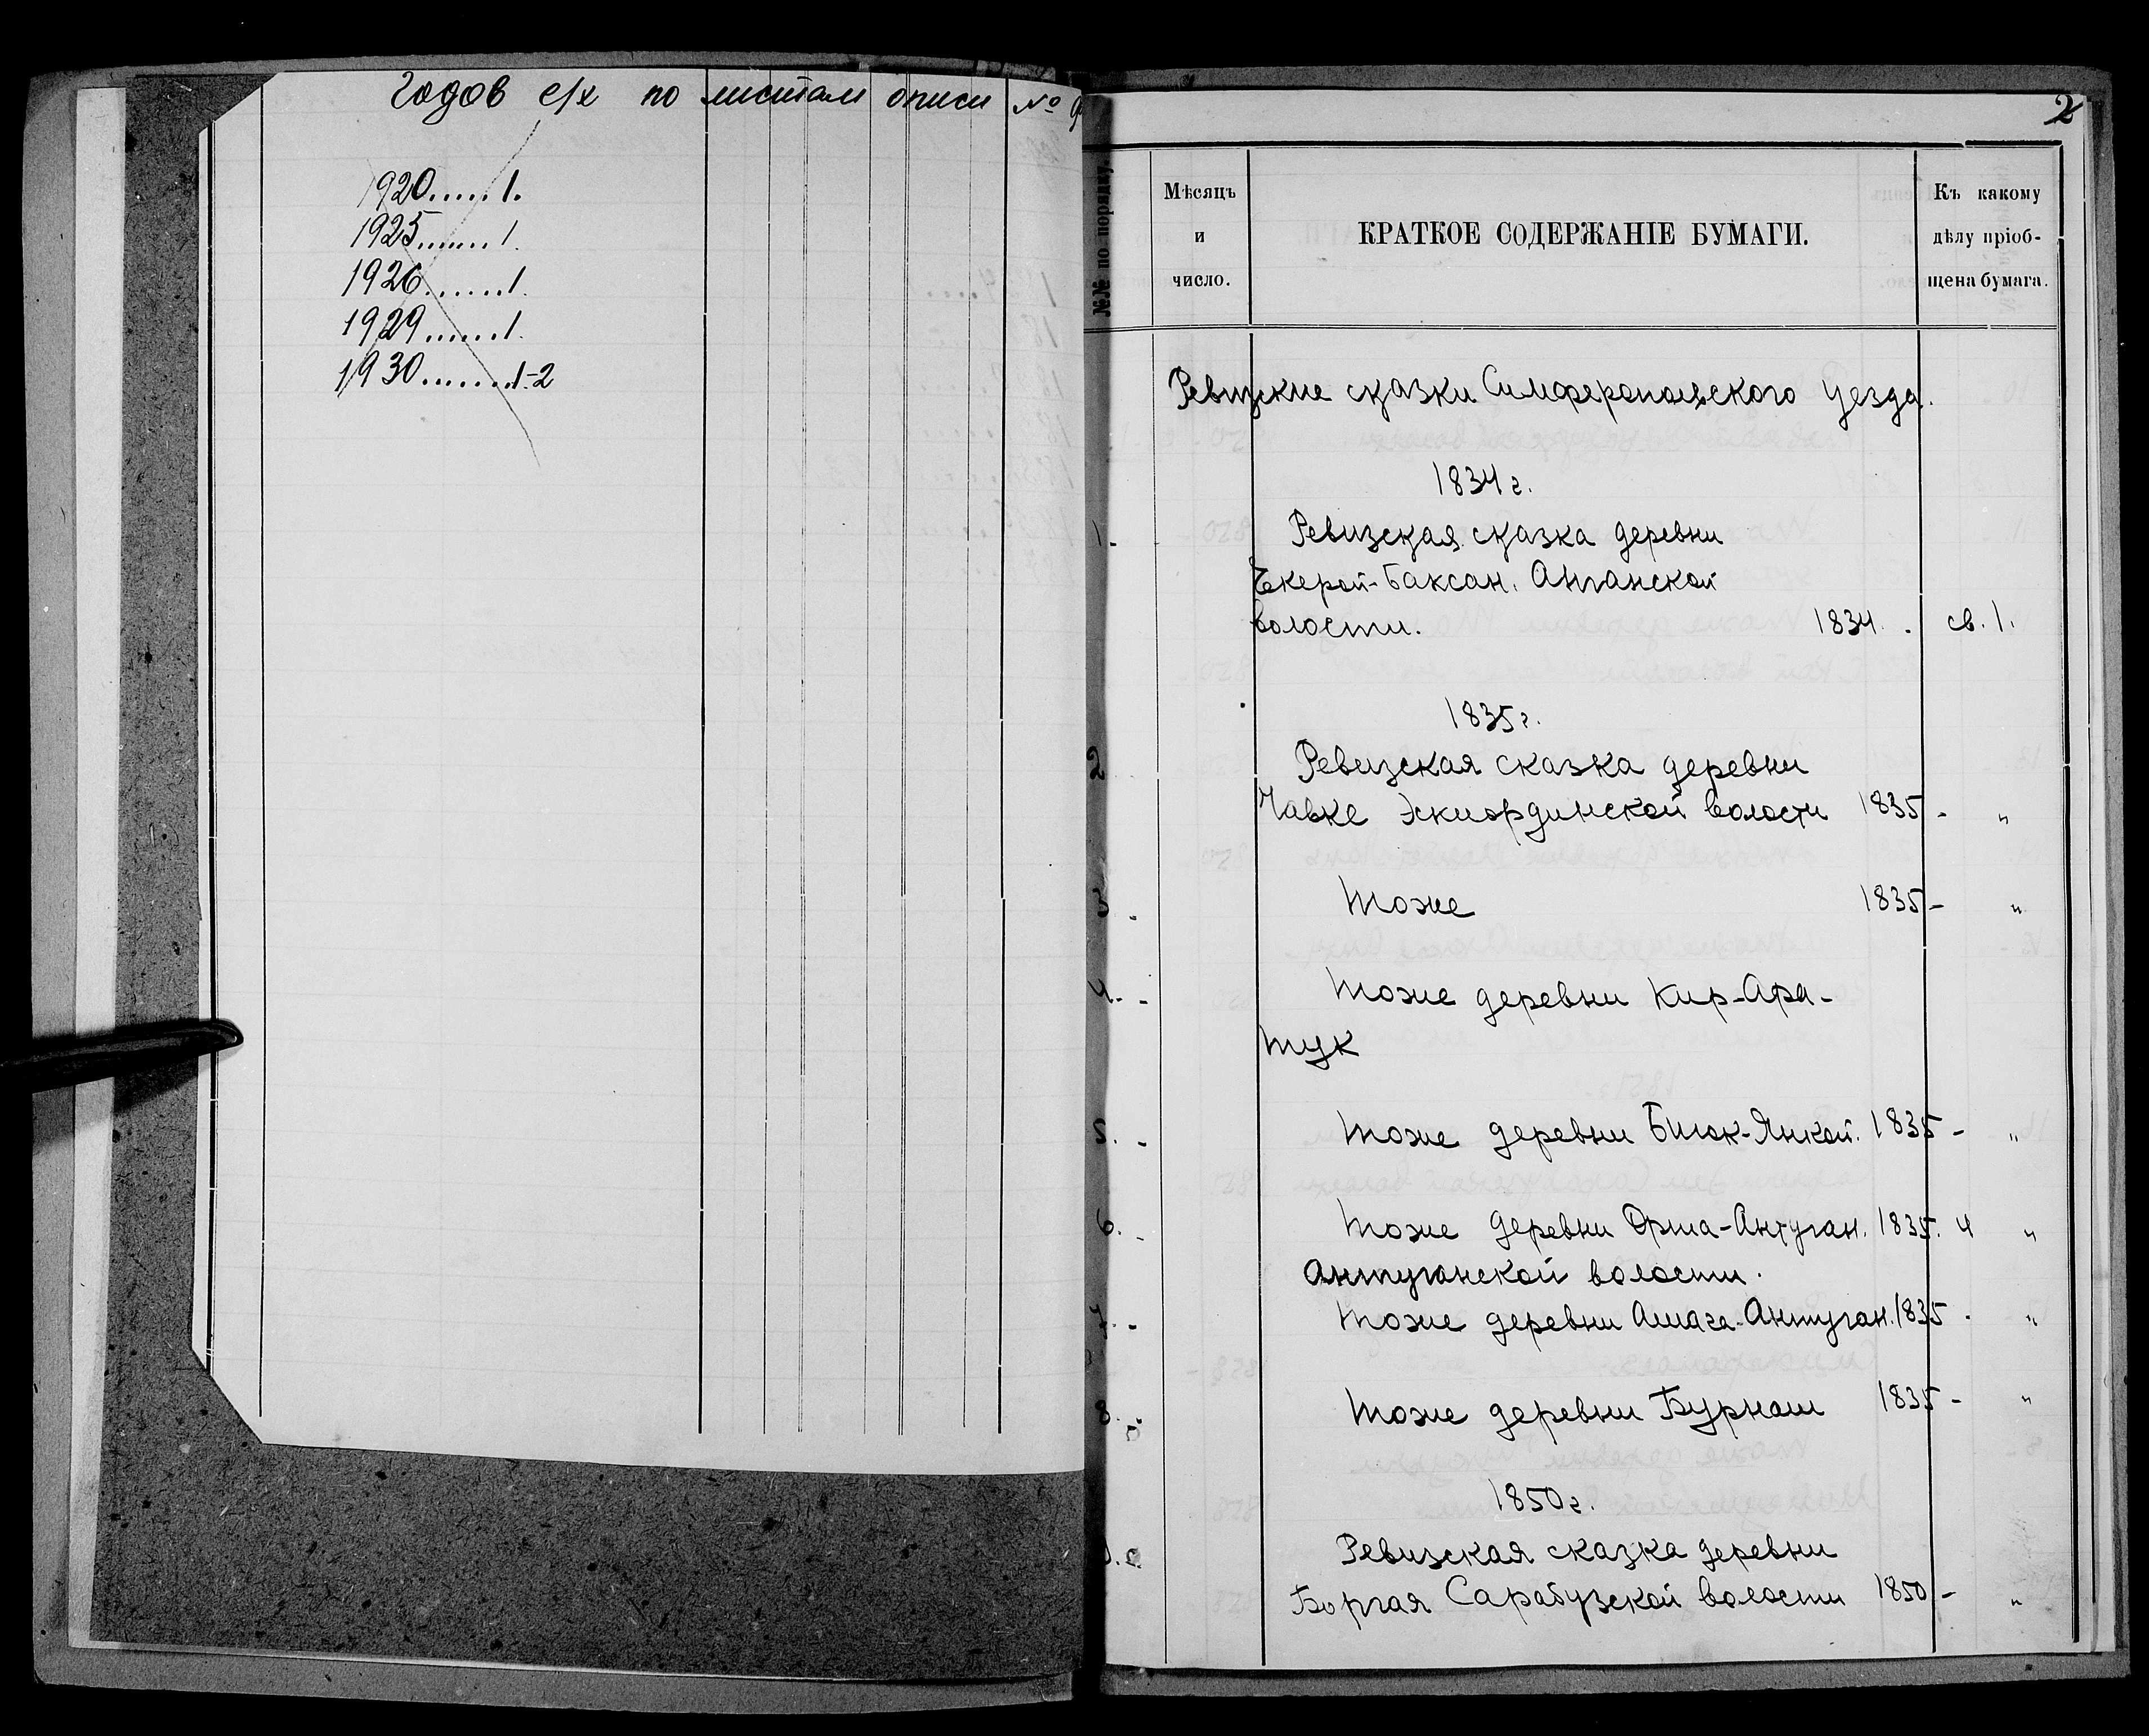 Годов с/х по листам описи №
1920......1.
1925.......1.
1926.......1.
1929.......1.
1930........1-2
2
№№ по порядку.
Мѣсяцъ
и
число.
КРАТКОЕ СОДЕРЖАНІЕ БУМАГИ.
Къ какому
дѣлу пріоб-
щена бумага.
Ревизские сказки Симферопольского уезда.
1834 г.
1. Ревизская сказка деревни
Баксан.
волости. 1834. св. 1.
1835 г.
2 Ревизская сказка деревни
Чавке Эскиординской волости 1835 - "
3. Тоже 1835 - "
4. - Тоже деревни Кир-Ара-
тук
5. - Тоже деревни Биюк-Янкой. 1835 - "
6. - Тоже деревни Орта-Антуган. 1835. ч "
Антуганской волости.
7. - Тоже деревни Ашага-Антуган. 1835 - "
8. Тоже деревни Бурнаш 1835 - "
1850 г.
Ревизская сказка деревни
Сарабузской волости 1850 - "